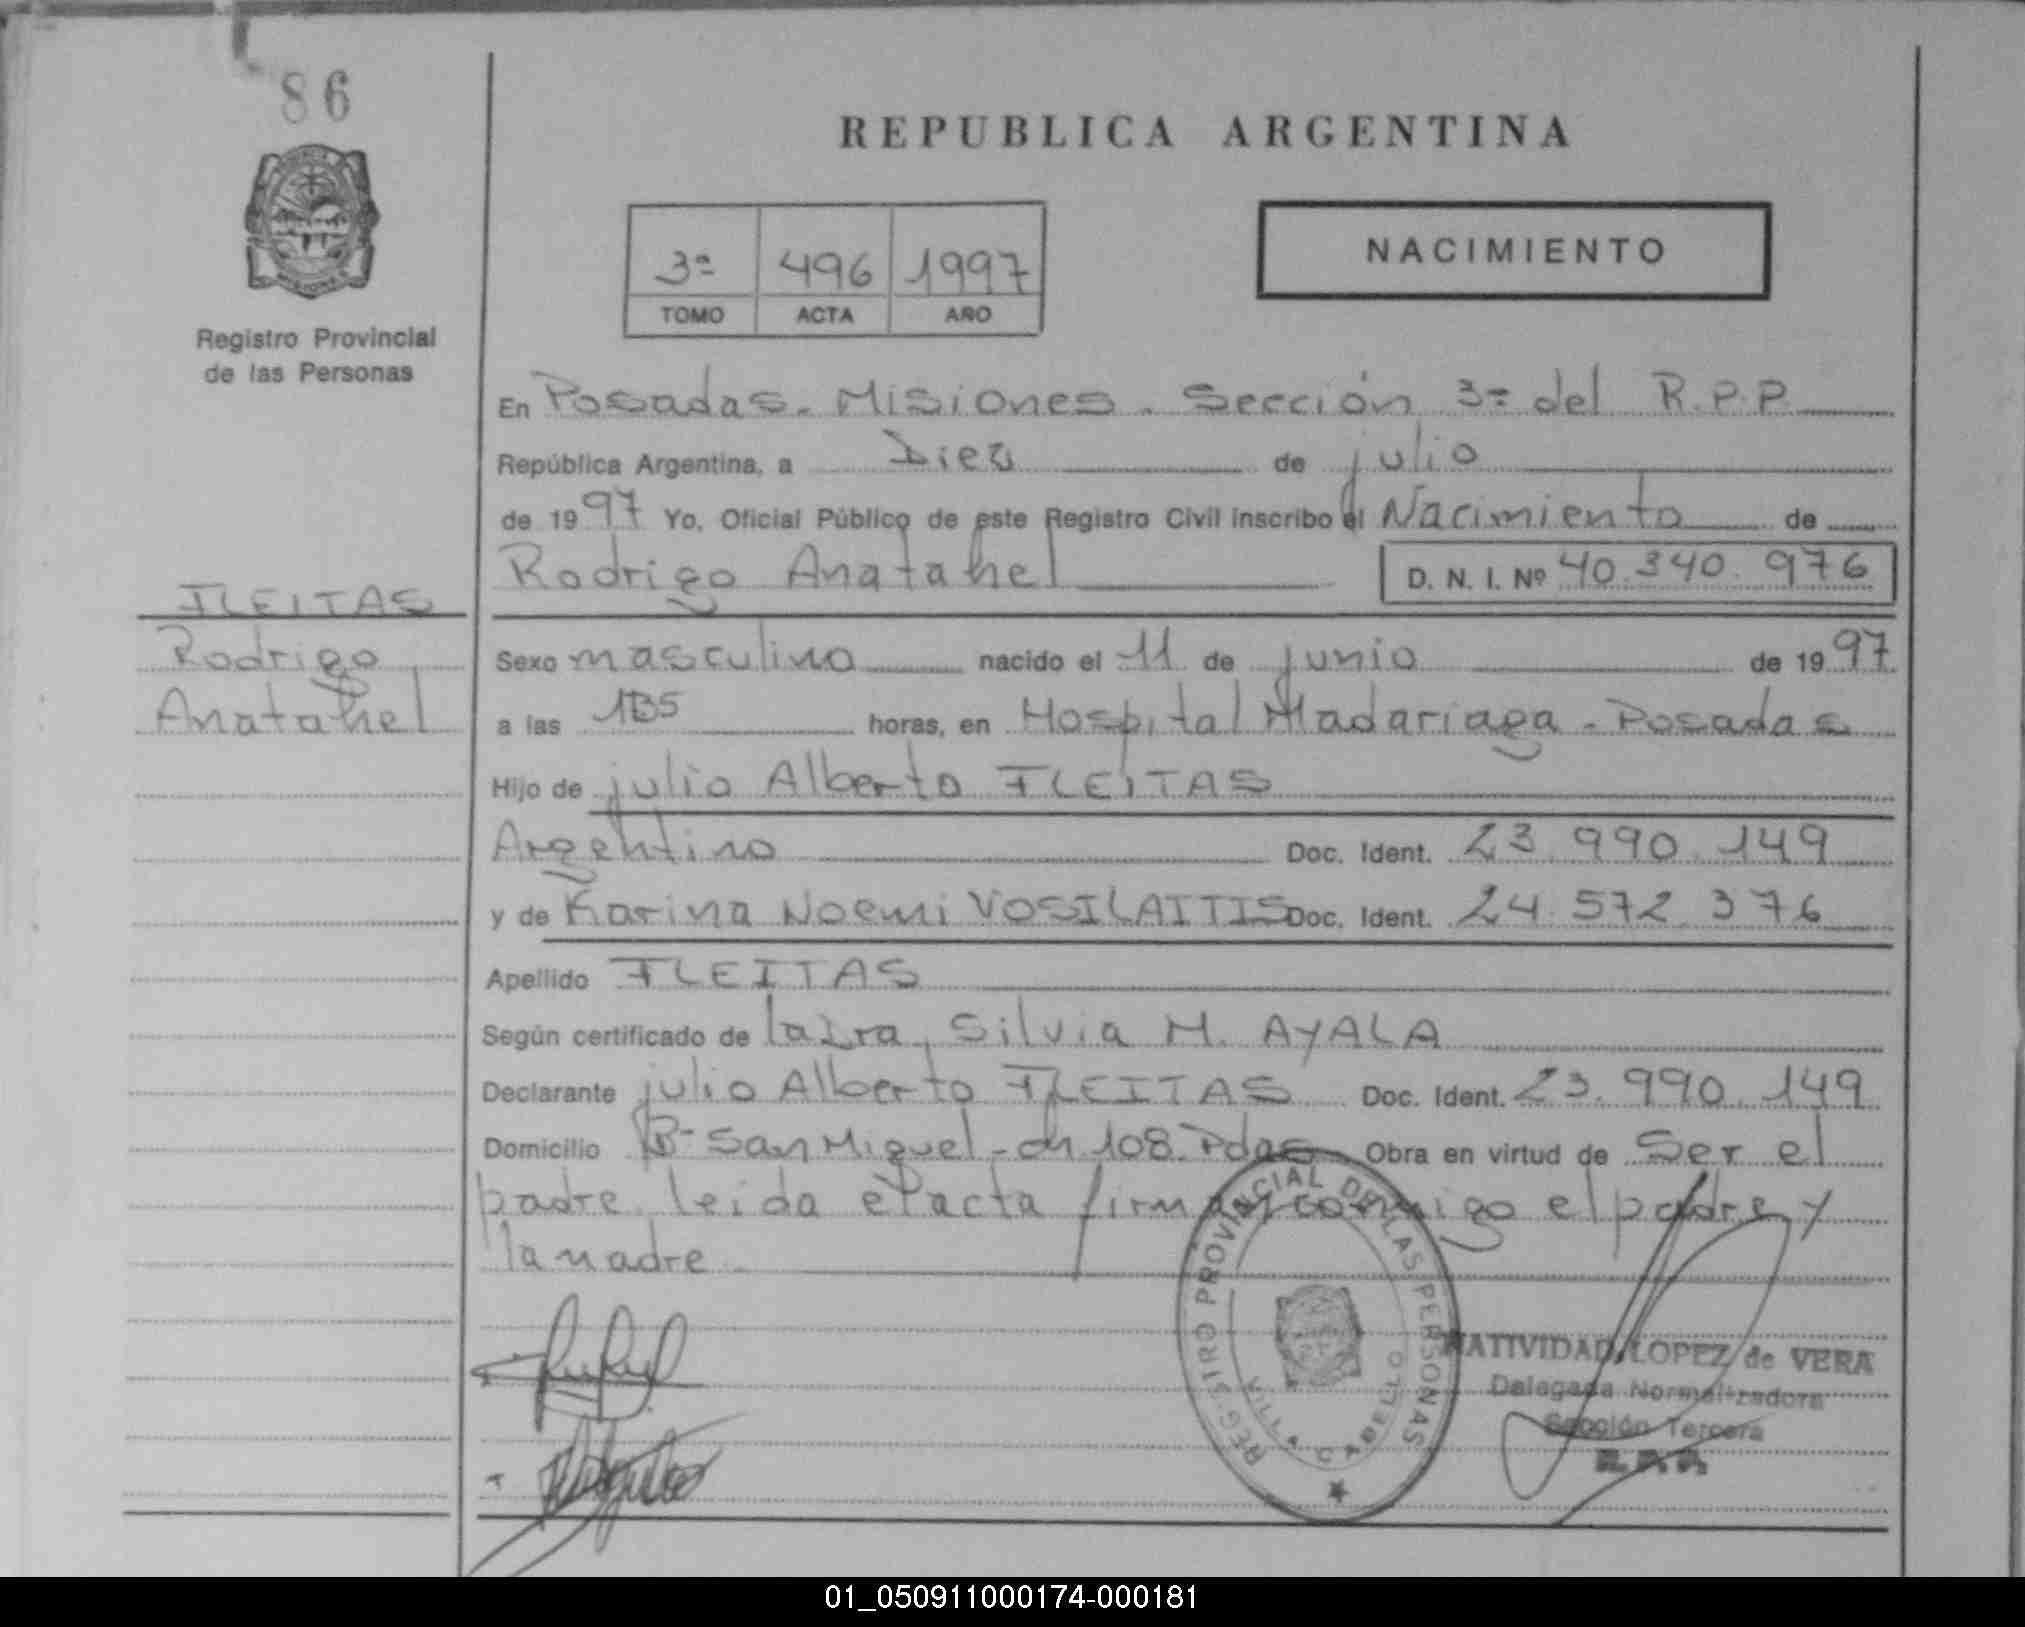 86
REPUBLICA ARGENTINA
3ª 496 1997
TOMO ACTA AÑO
NACIMIENTO
Registro Provincial
de las Personas
En Posadas - Misiones - Sección 3ª del R.P.P
República Argentina, a Diez de julio
de 1997 Yo, Oficial Público de este Registro Civil inscribo el Nacimiento de
Rodrigo Anatahel D. N. I. Nº 40.340.976
FLEITAS
Rodrigo
Anatahel
Sexo masculino nacido el 11 de junio de 1997
a las horas, en Hospital Madariaga - Posadas
Hijo de julio Alberto FLEITAS
Argentino Doc. Ident. 23.990.149
y de Karina Noemi VOSILAITIS Doc. Ident. 24.572.376
Apellido FLEITAS
Según certificado de la Dra, Silvia M. AYALA
Declarante julio Alberto FLEITAS Doc. Ident. 23.990.149
Domicilio Bº San Miguel - ch 108. Pdas Obra en virtud de Ser el
padre. leida el acta firman conmigo el padre y
la madre
REGISTRO PROVINCIAL DE LAS PERSONAS
VILLA CABELLO
NATIVIDAD LOPEZ de VERA
Delegada Normalizadora
Sección Tercera
R.P.P.
01_050911000174-000181